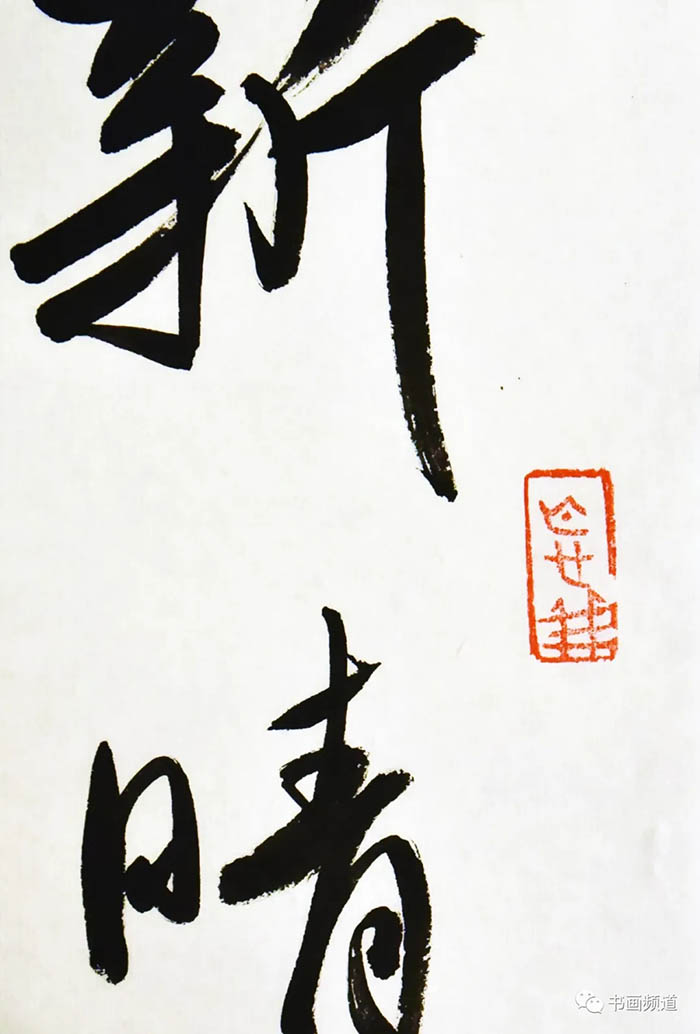 新
晴
书画频道